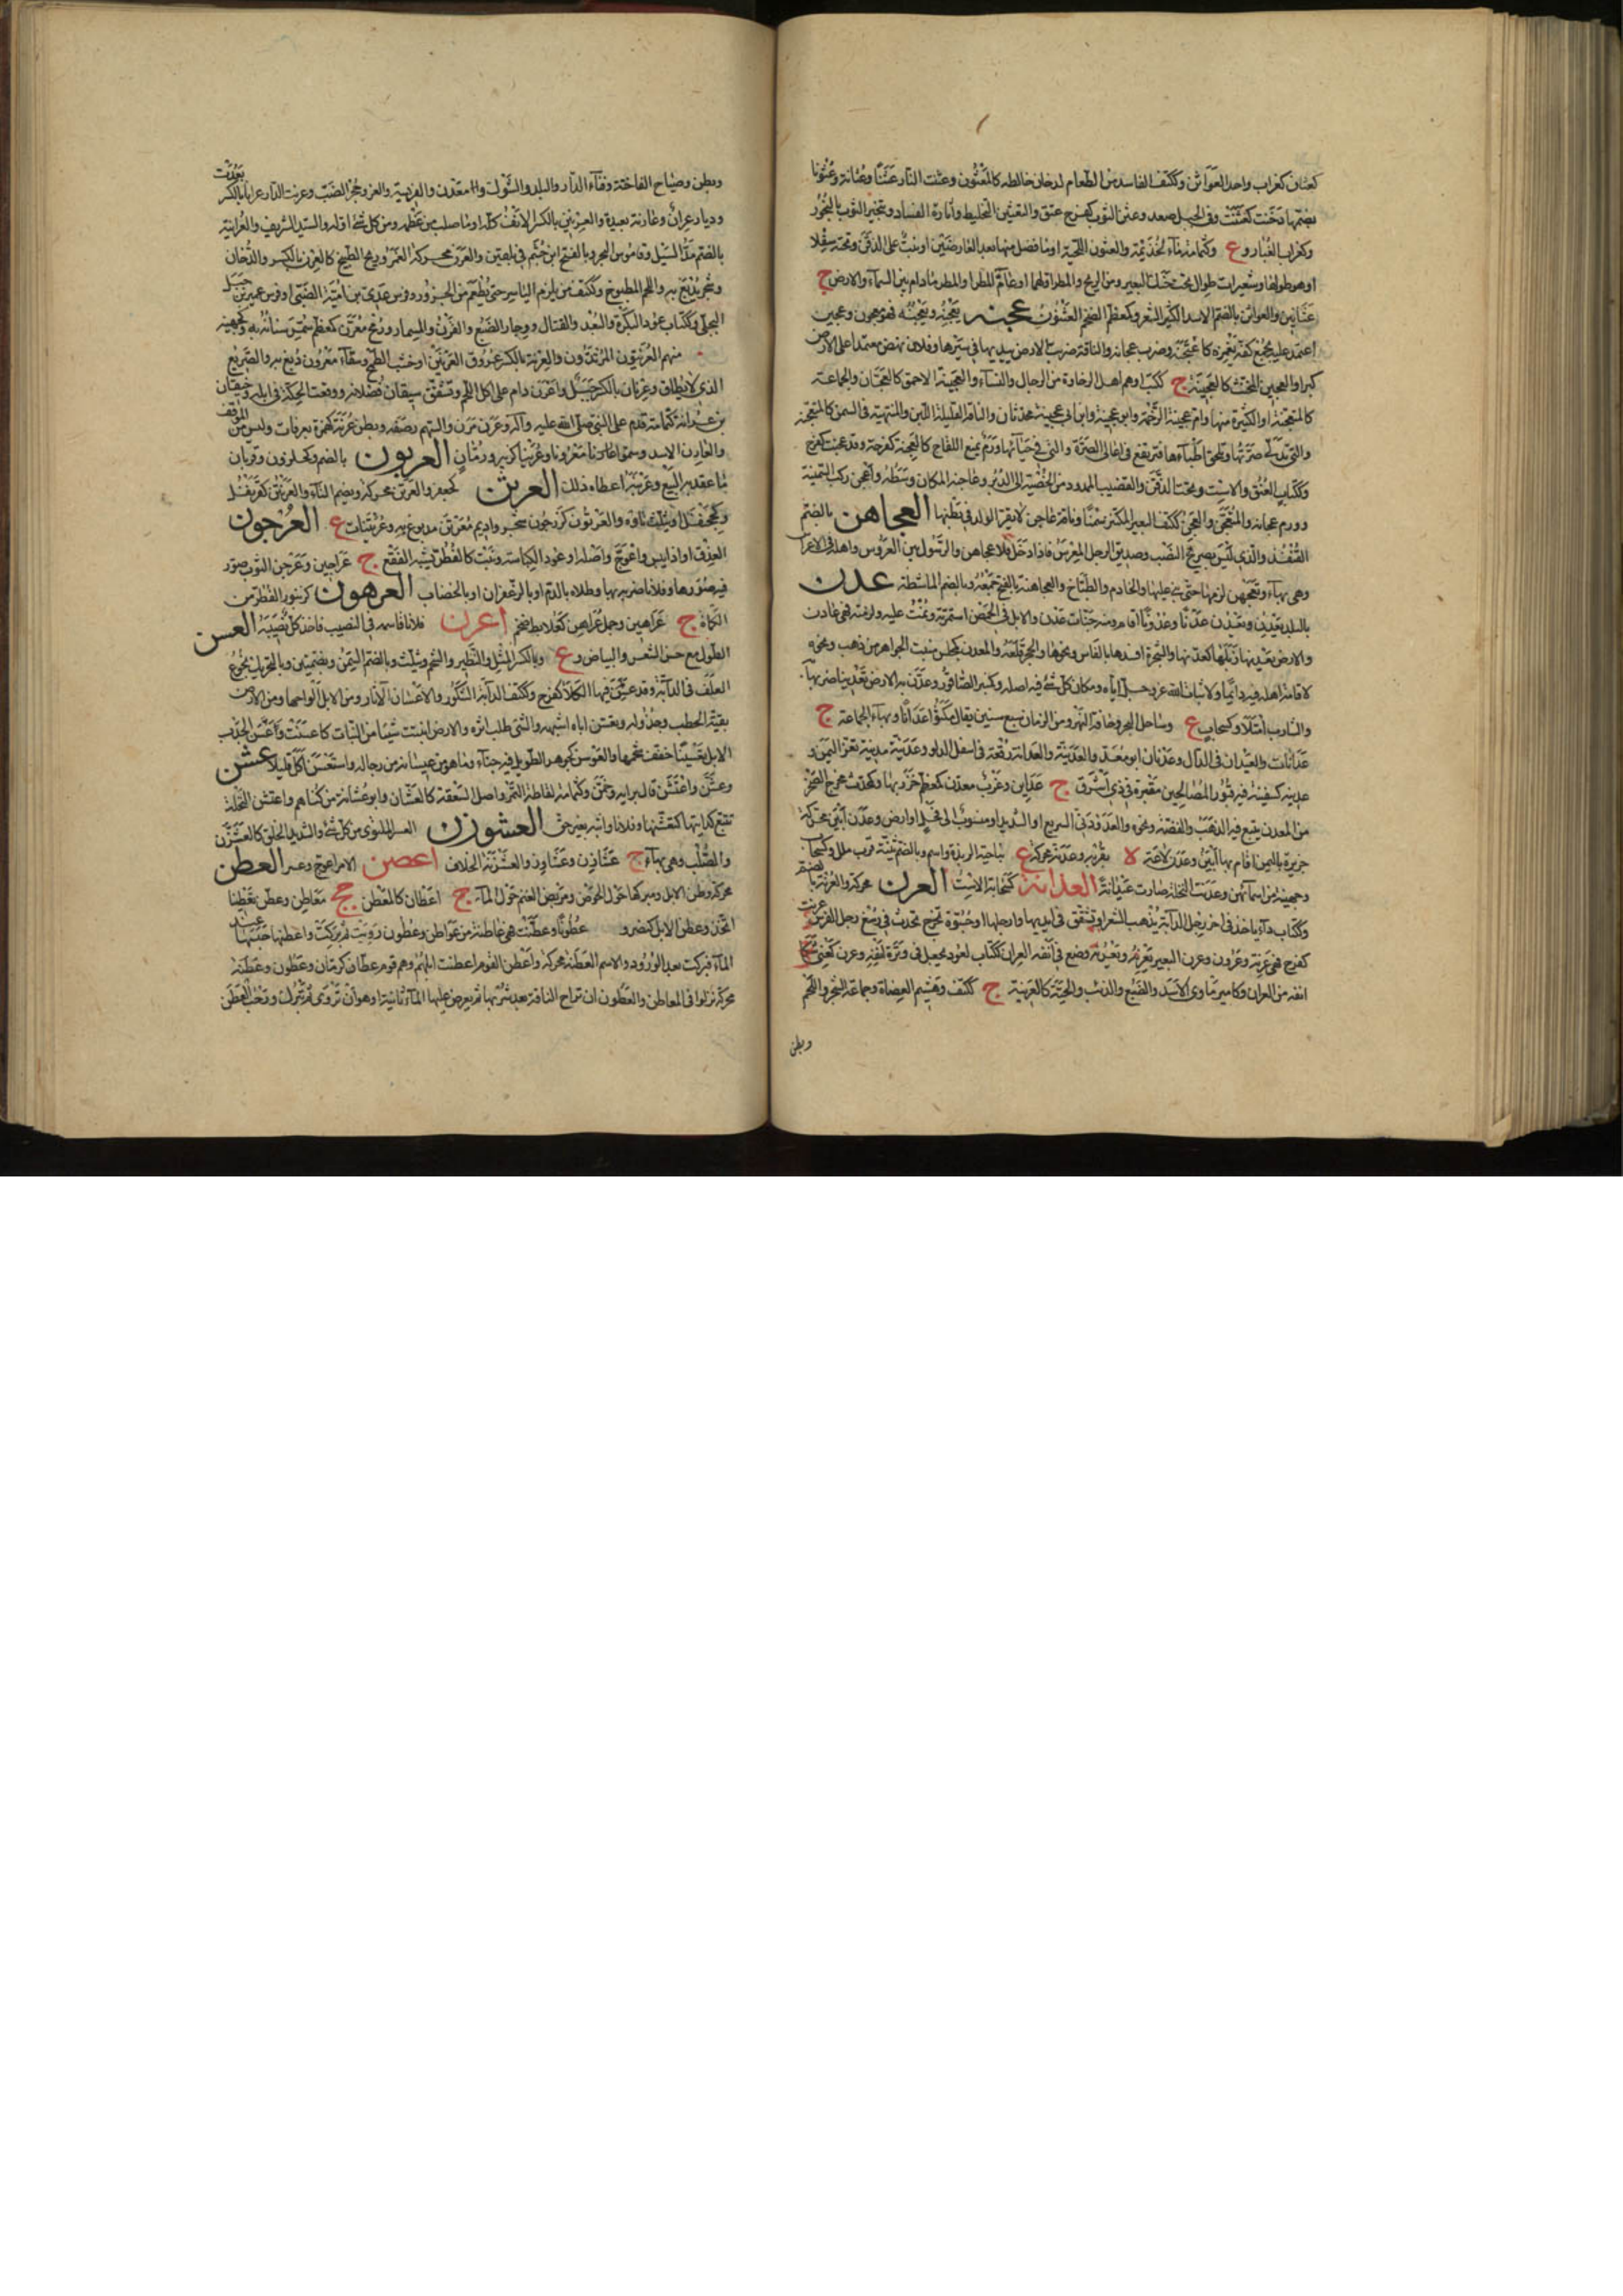 كعثان كغراب واحد العواثن وككتف الفاسد من الطعام لدخان خالطه كالمعثون وعثنت النار عثنا وعثانة وعثونا
بضمها دخنت كعثنت وفي الجبل صعد وعثن الثوب كفرح عبق والتعثين التخليط واثارة الفساد وتبخير الثوب بالبخور
وكغراب الغبار وع وكثمامة ماء لجذيمة والعثنون اللحية او ما فضل منها بعد العارضين او نبت على الذقن وتحته سفلا
او هو طولها وشعيرات طوال تحت حنك البعير ومن الريح والمطر اولهما او عام المطر او المطر ما دام بين السماء والارض ج
عثانين والعواثن بالضم الاسد الكثير الشعر وكمعظم الضخم العثنون عجنه يعجنه ويعجنه فهو معجون وعجين
اعتمد عليه بجمع كفه يغمزه كاعتجنه وضرب عجانه والناقة ضربت الارض بيديها في سيرها وفلان نهض معتمدا على الارض
كبرا والعجين المخنث كالعجينة ج ككتب او هم اهل الرخاوة من الرجال والنساء والعجينة الاحمق كالعجان والجماعة
كالمتعجنة او الكثيرة منها وام عجينة الرخمة وابو عجينة وابنا ابي عجينة محدثان والناقة القليلة اللبن والمنتهية في السمن كالمتعجنة
والتي تدلى ضرتها وتلحق اطباءها فترتفع في اعالي الضرة والتي في حيائها ورم يمنع اللقاح كالعجنة كفرحة وقد عجنت كفرح
وككتاب العنق والاست وتحت الذقن والقضيب الممدود من الخصية الى الدبر وعاجنة المكان وسطه واعجن ركب السمينة
وورم عجانه والمتعجن والعجن ككتف البعير المكتنز سمنا وناقة عاجن لا يقر الولد في بطنها العجاهن بالضم
القنفذ والذي ليس بصريح النسب وصديق الرجل المعرس فاذا دخل فلا عجاهن والرسول بين العروس واهله في الاعراس
وهي بهاء وتعجهن لزمها حتى بني عليها والخادم والطباخ والعجاهنة بالفتح جمعه وبالضم الماشطة عدن
بالبلد يعدن ويعدن عدنا وعدونا اقام ومنه جنات عدن والابل في الحمض استمرته ونمت عليه ولزمته فهي عادن
والارض يعدنها زبلها كعدنها والشجرة افسدها بالفاس ونحوها والحجر قلعه والمعدن كمجلس منبت الجواهر من ذهب ونحوه
لاقامة اهله فيه دائما ولانبات الله عز وجل اياه ومكان كل شيء فيه اصله وكمنبر الصاقور وعدن به الارض تعدينا ضربها
والشارب امتلأ وكسحاب ع وساحل البحر وحافة النهر ومن الزمان سبع سنين يقال مكثوا عدانا وبهاء الجماعة ج
عدانات والعيدان في الدال وعدنان ابو معد والعدينة والعدانة رقعة في اسفل الدلو وعدينة مدينة تعز اليمن
عدينة كسفينة فيه قبور الصالحين مقبرة في ذي اشرق ج عداين وغرب معدن كمعظم خرز بها وكمحدث مخرج الصخر
من المعدن يتبع فيه الذهب والفضة ونحوه والعدودني السريع او الشديد او منسوب الى فحل او ارض وعدن ابين محركة
جزيرة باليمن اقام بها ابين وعدن لاعة لا بقربه وعدنة محركة ع بناحية الربذة واسم وبالضم ثنية قرب ملل وكسحاب
وجهينة من اسمائهن وعدنت النخلة صارت عيدانة العذانة كسحابة الاست العرن محركة والعرنة بالضم
وككتاب داء ياخذ في اخر رجل الدابة يذهب الشعر او تشقق في ايديها وارجلها او جسوة تخرج تحدث في رسغ رجل الفرس عرنت
كفرح فهي عرنة وعرون وعرن البعير يعرنه ويعرنه وضع في انفه العران ككتاب لعود يجعل في وترة انفه وعرن كعني شكا
انفه من العران وكامير ماوى الاسد والضبع والذئب والحية كالعرينة ج ككتف وهشيم العضاة وجماعة الشجر واللحم
وبطن
وبطن وصياح الفاختة وفناء الدار والبلد والشوك وامعدن والفريسة والعز وجحر الضب وعرنت الدار عرانا بالكسر بعدت
وديار عران وعارنة بعيدة والعرنين بالكسر الانف كله او ما صلب من عظمه ومن كل شيء اوله والسيد الشريف والعرانية
بالضم مد السيل وقاموس البحر وبالفتح ابن جشم في بلقين والعرن محركة الغمر وريح الطبيخ كالعرن بالكسر والدخان
وشجر يدبغ به واللحم المطبوخ وككتف من يلزم الياسر حتى يطعم من الجزور وفرس عدي بن امية الضبي او فرس عمير بن جبل
البجلي وككتاب عود البكرة والبعد والقتال ووجار الضبع والقرن والمسمار ورمح معرن كمعظم سمر سنانه به وكجهينة
منهم العرنيون المرتدون والعرنة بالكسر عروق العرنتن او خشب الظمخ وسقاء معرون دبغ به والصريع
الذي لا يطاق وعرنان بالكسر جبل واعرن دام على اكل اللحم وتشقق سيقان فصلانه ووقعت الحكة في ابله وخيفان
بن عرانة كثمامة قدم على النبي صلى الله عليه وآله وعرن مرن والسهم رصفه وبطن عرنة كهمزة بعرفات وليس من الموقف
والعارن الاسد وسموا عارنا معرونا وعرينا كزبير ورمان العربون بالضم وكحلزون وقربان
ما عقد به البيع وعربنه اعطاه ذلك العرتن كجعفر والعرتن محركة وبضم التاء والعرنتن كقرنفل
وكجحنفل ويثلث تاؤه والعرتون كزرجون شجر واديم معرتن مدبوغ به وعريتنات ع العرجون
العذق او اذا يبس واعوج واصله او عود الكباسة ونبت كالفطر يشبه الفقع ج عراجين وعرجن الثوب صور
فيه صورها وفلانا ضربه بها وطلاه بالدم او بالزعفران او بالخضاب العرهون كزنبور الفطر من
الكماة ج عراهين وجمل عراهن كعلابط ضخم اعزن فلانا قاسمه في النصيب فاخذ كل نصيبه العسن
الطول مع حسن الشعر والبياض وع وبالكسر المثل والنظير والشحم ويثلث وبالضم السمن وبضمتين وبالتحريك نجوع
العلف في الدابة وقد عسن فيها الكلأ كفرح وككتف الدابة الشكور والاعسان الآثار ومن الابل الواحها ومن الارض
بقية الحطب وجذوله وتعسن اباه اشبهه والشيء طلب اثره والارض انبتت شيئا من النبات كاعسنت واعسن الجدب
الابل تعسينا خففت شحمها والعوسن كجوهر الطويل فيه جناء وما هو من عيسانه من رجاله واستعسن اكل قليلا عشن
وعشن واعتشن قال برايه وخمن وكثمامة لقاطة التمر واصل السعفة كالعشان وابو عشانة من كناهم واعتشن النخلة
تتبع كدابتها كتعشنها وفلانا واثبه بغير حق العشوزن العسر الملتوي من كل شيء والشديد الخلق كالعشزن
والصلب وهي بهاء ج عشازن وعشاوز والعشزنة الخلاف اعصن الامر اعوج وعسر العطن
محركة وطن الابل ومبركها حول الحوض ومربض الغنم حول الماء ج اعطان كالمعطن جج معاطن وعطن تعطينا
اتخذه وعطنت الابل كنصر وضرب عطونا وعطنت فهي عاطنة من عواطن وعطون رويت ثم بركت واعطنها حبسها عند
الماء فبركت بعد الورود والاسم العطنة محركة واعطن القوم اعطنت ابلهم وهم قوم عطان كرمان وعطون وعطنة
محركة نزلوا في المعاطن والعطون ان تراح الناقة بعد شربها ثم يعرض عليها الماء ثانية او هو ان تروى ثم تترك ورحب العطن